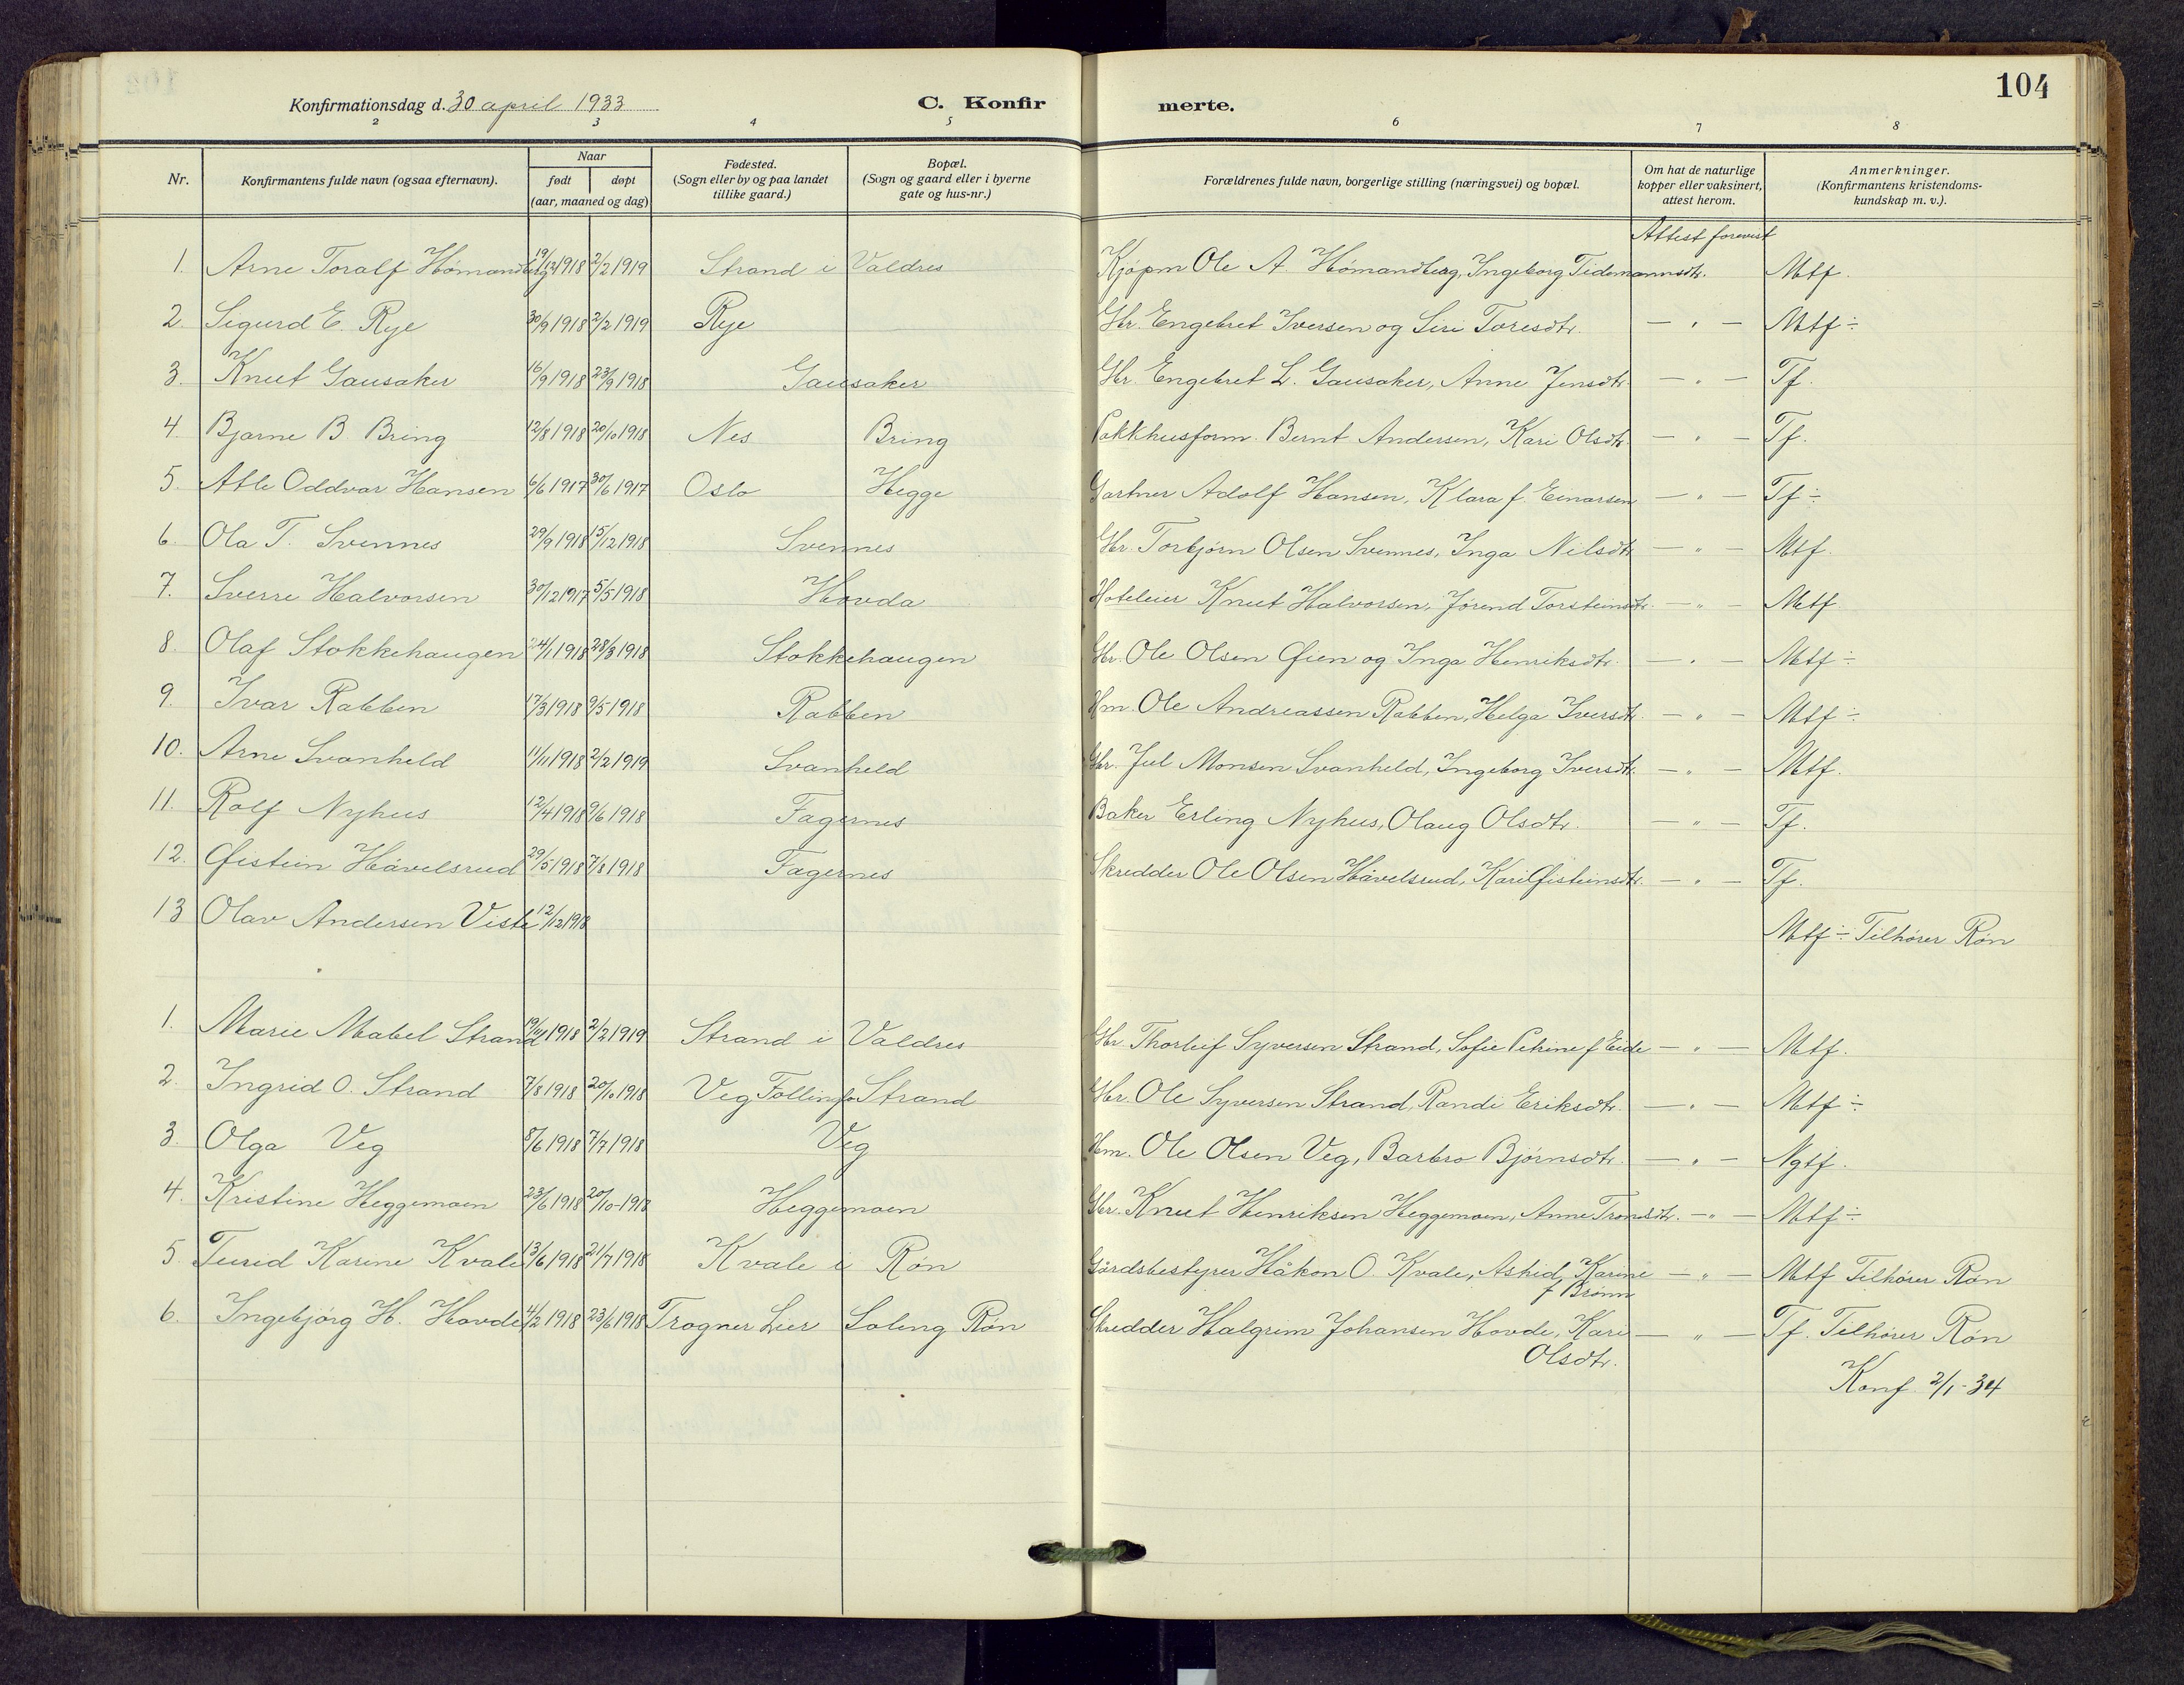 104
Konfirmationsdag d. 30 april 1933 C. Konfir merte.
2 3 4 5 6 7 8
Nr. Konfirmantens fulde navn (ogsaa efternavn). Naar født døpt (aar, maaned og dag) Fødested. (Sogn eller by og paa landet tillike gaard.) Bopæl. (Sogn og gaard eller i byerne gate og hus-nr.) Forældrenes fulde navn, borgerlige stilling (næringsvei) og bopæl. Om hat de naturlige kopper eller vaksinert, attest herom. Anmerkninger. (Konfirmantens kristendoms-kundskap m. v.).
Attest forevist
1. Arne Toralf Hømandberg 19/12 1918 2/2 1919 Strand i Valdres Kjøpm Ole A. Hømandberg, Ingeborg Tidemannsdtr. Mtf.
2. Sigurd E. Rye 30/9 1918 2/2 1919 Rye Gbr. Engebret Iversen og Siri Toresdtr. — " — Mtf ÷
3. Knut Gausaker 16/9 1918 23/9 1918 Gausaker Gbr. Engebret L. Gausaker, Anne Jensdtr. — " — Tf.
4. Bjarne B Bring 12/8 1918 20/10 1918 Nes Bring Pakkhusform. Bernt Andersen, Kari Olsdtr. — " — Tf.
5. Atle Oddvar Hansen 6/6 1917 30/6 1917 Oslo Hegge Gartner Adolf Hansen, Klara f. Einarsen — " — Tf ÷
6. Ola T. Svennes 29/9 1918 15/12 1918 Svennes Gbr. Torbjørn Olsen Svennes, Inga Nilsdtr — " — Mtf.
7. Sverre Halvorsen 30/12 1917 5/5 1918 Hovda Hoteleier Knut Halvorsen, Jørend Torsteinsdtr. — " — Mtf
8. Olaf Stokkehaugen 24/1 1918 28/3 1918 Stokkehaugen Gbr. Ole Olsen Øien og Inga Henriksdtr. — " — Mtf ÷
9. Ivar Rabben 17/3 1918 9/5 1918 Rabben Hm. Ole Andreassen Rabben, Helga Iversdtr. — " — Mtf ÷
10. Arne Svanheld 11/11 1918 2/2 1919 Svanheld Gbr. Jul Monsen Svanheld, Ingeborg Iversdtr. — " — Mtf.
11. Rolf Nyhus 12/4 1918 9/6 1918 Fagernes Baker Erling Nyhus, Olaug Olsdtr. — " — Tf.
12. Øistein Håvelsrud 29/5 1918 7/8 1918 Fagernes Skredder Ole Olsen Håvelsrud, Kari Øisteinsdtr. — " — Tf.
13 Olav Andersen Viste 12/12 1918 Mtf ÷ Tilhører Røn
1. Marie Mabel Strand 19/11 1918 2/2 1919 Strand i Valdres Gbr Thorleif Syversen Strand, Sofie Petrine f Eide — " — Mtf.
2. Ingrid O. Strand 7/8 1918 20/10 1918 Veg Follinglo Strand Gbr. Ole Syversen Strand, Randi Eriksdtr. — " — Mtf ÷
3. Olga Veg 8/6 1918 7/7 1918 Veg Hm. Ole Olsen Veg, Barbro Bjørnsdtr. — " — Ngtf.
4. Kristine Heggemoen 23/6 1918 20/10-1918 Heggemoen Gbr. Knut Henriksen Heggemoen, Anne Trondsdtr. — " — Mtf ÷
5 Turid Karine Kvale 13/6 1918 21/7 1918 Kvale i Røn Gårdsbestyrer Håkon O. Kvale, Astrid Karine f Brønn — " — Mtf Tilhører Røn
6. Ingebjørg H. Hovde 4/2 1918 23/6 1918 Tragner Lier Loling Røn Skredder Halgrim Johansen Hovde, Kari Olsdtr. — " — Tf. Tilhører Røn
Konf. 2/1-34